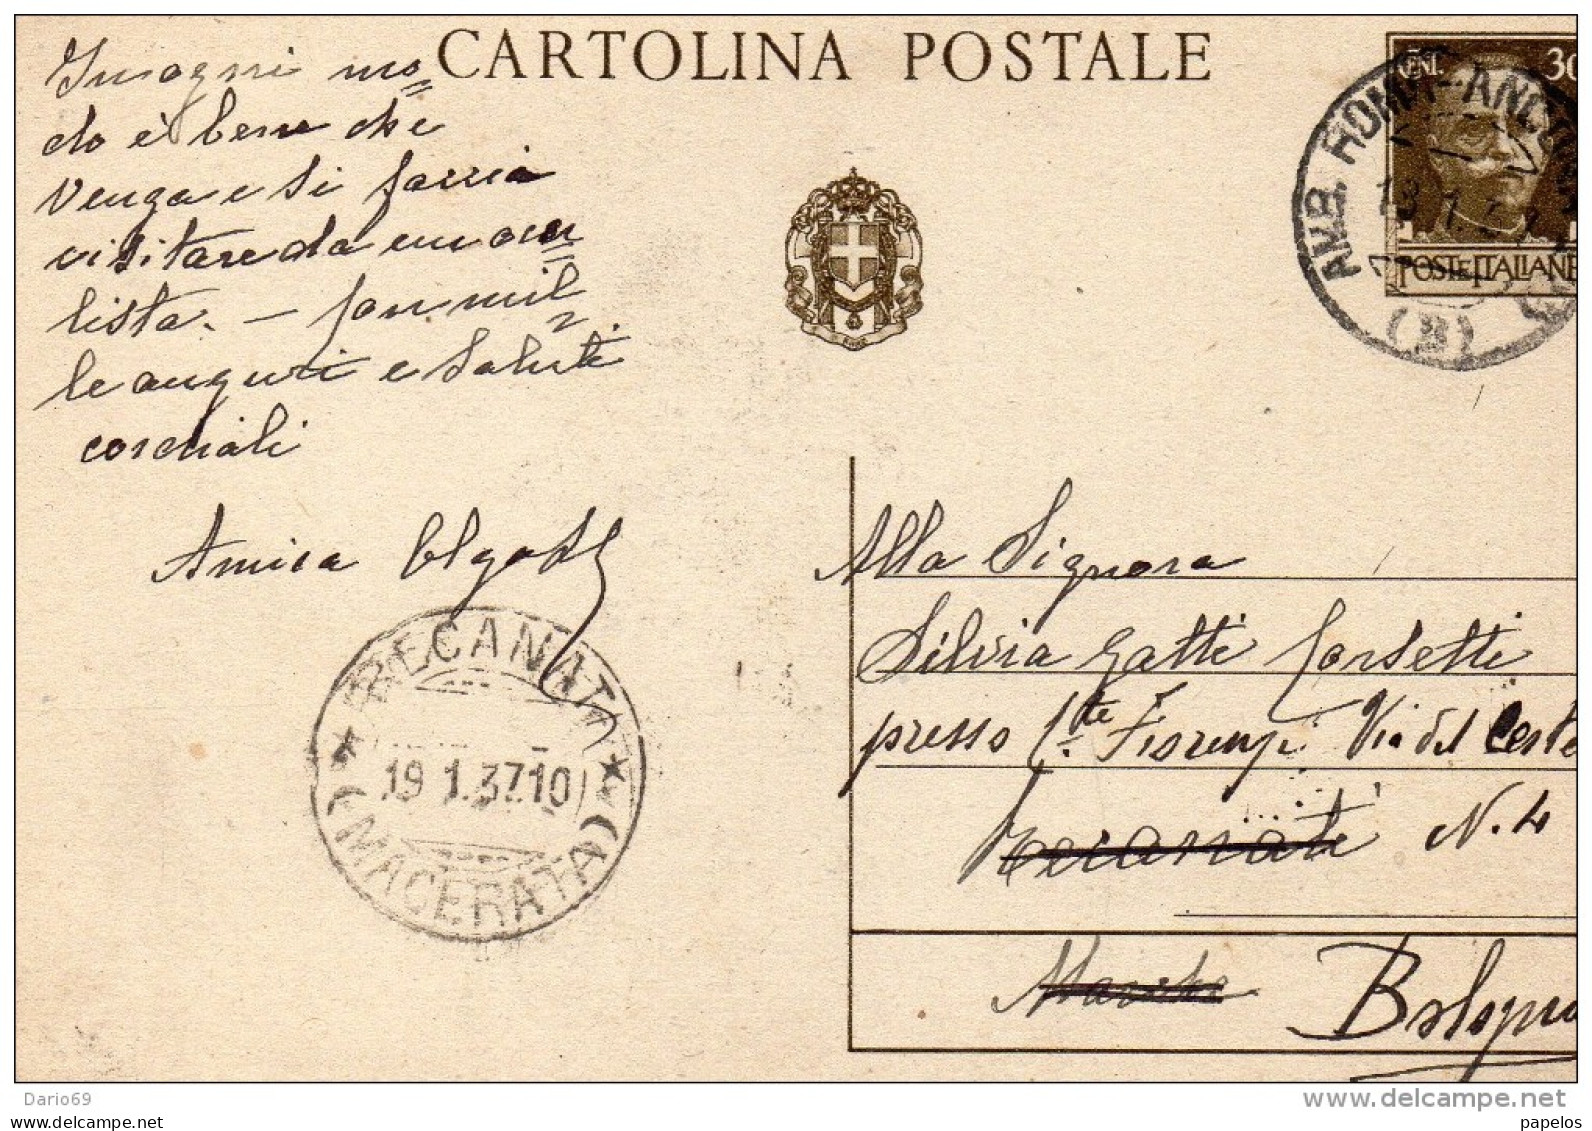 CARTOLINA POSTALE
In ogni mo=
do è bene che
venga e si faccia
visitare da un ocu=
lista. — Con mil=
le auguri e saluti
cordiali
Amica Olga
CENT. 30
POSTE ITALIANE
AMB. ROMA-ANCONA
(B)
RECANATI
19 1.37.10
(MACERATA)
Alla Signora
Silvia Gatti Corsetti
presso Fiorenzi Via del Ceste
Recanati N. 4
Marche Bologna
Dario69
www.delcampe.net
papelos